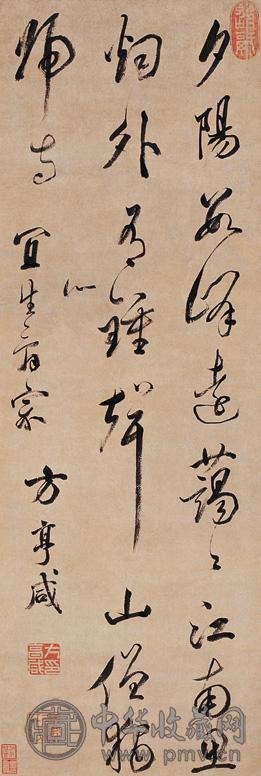 夕陽數峰遠藹〻江南
外鐘聲山僧
歸寺
宜生詞宗
方亨咸
中华收藏网
www.pmv.cn